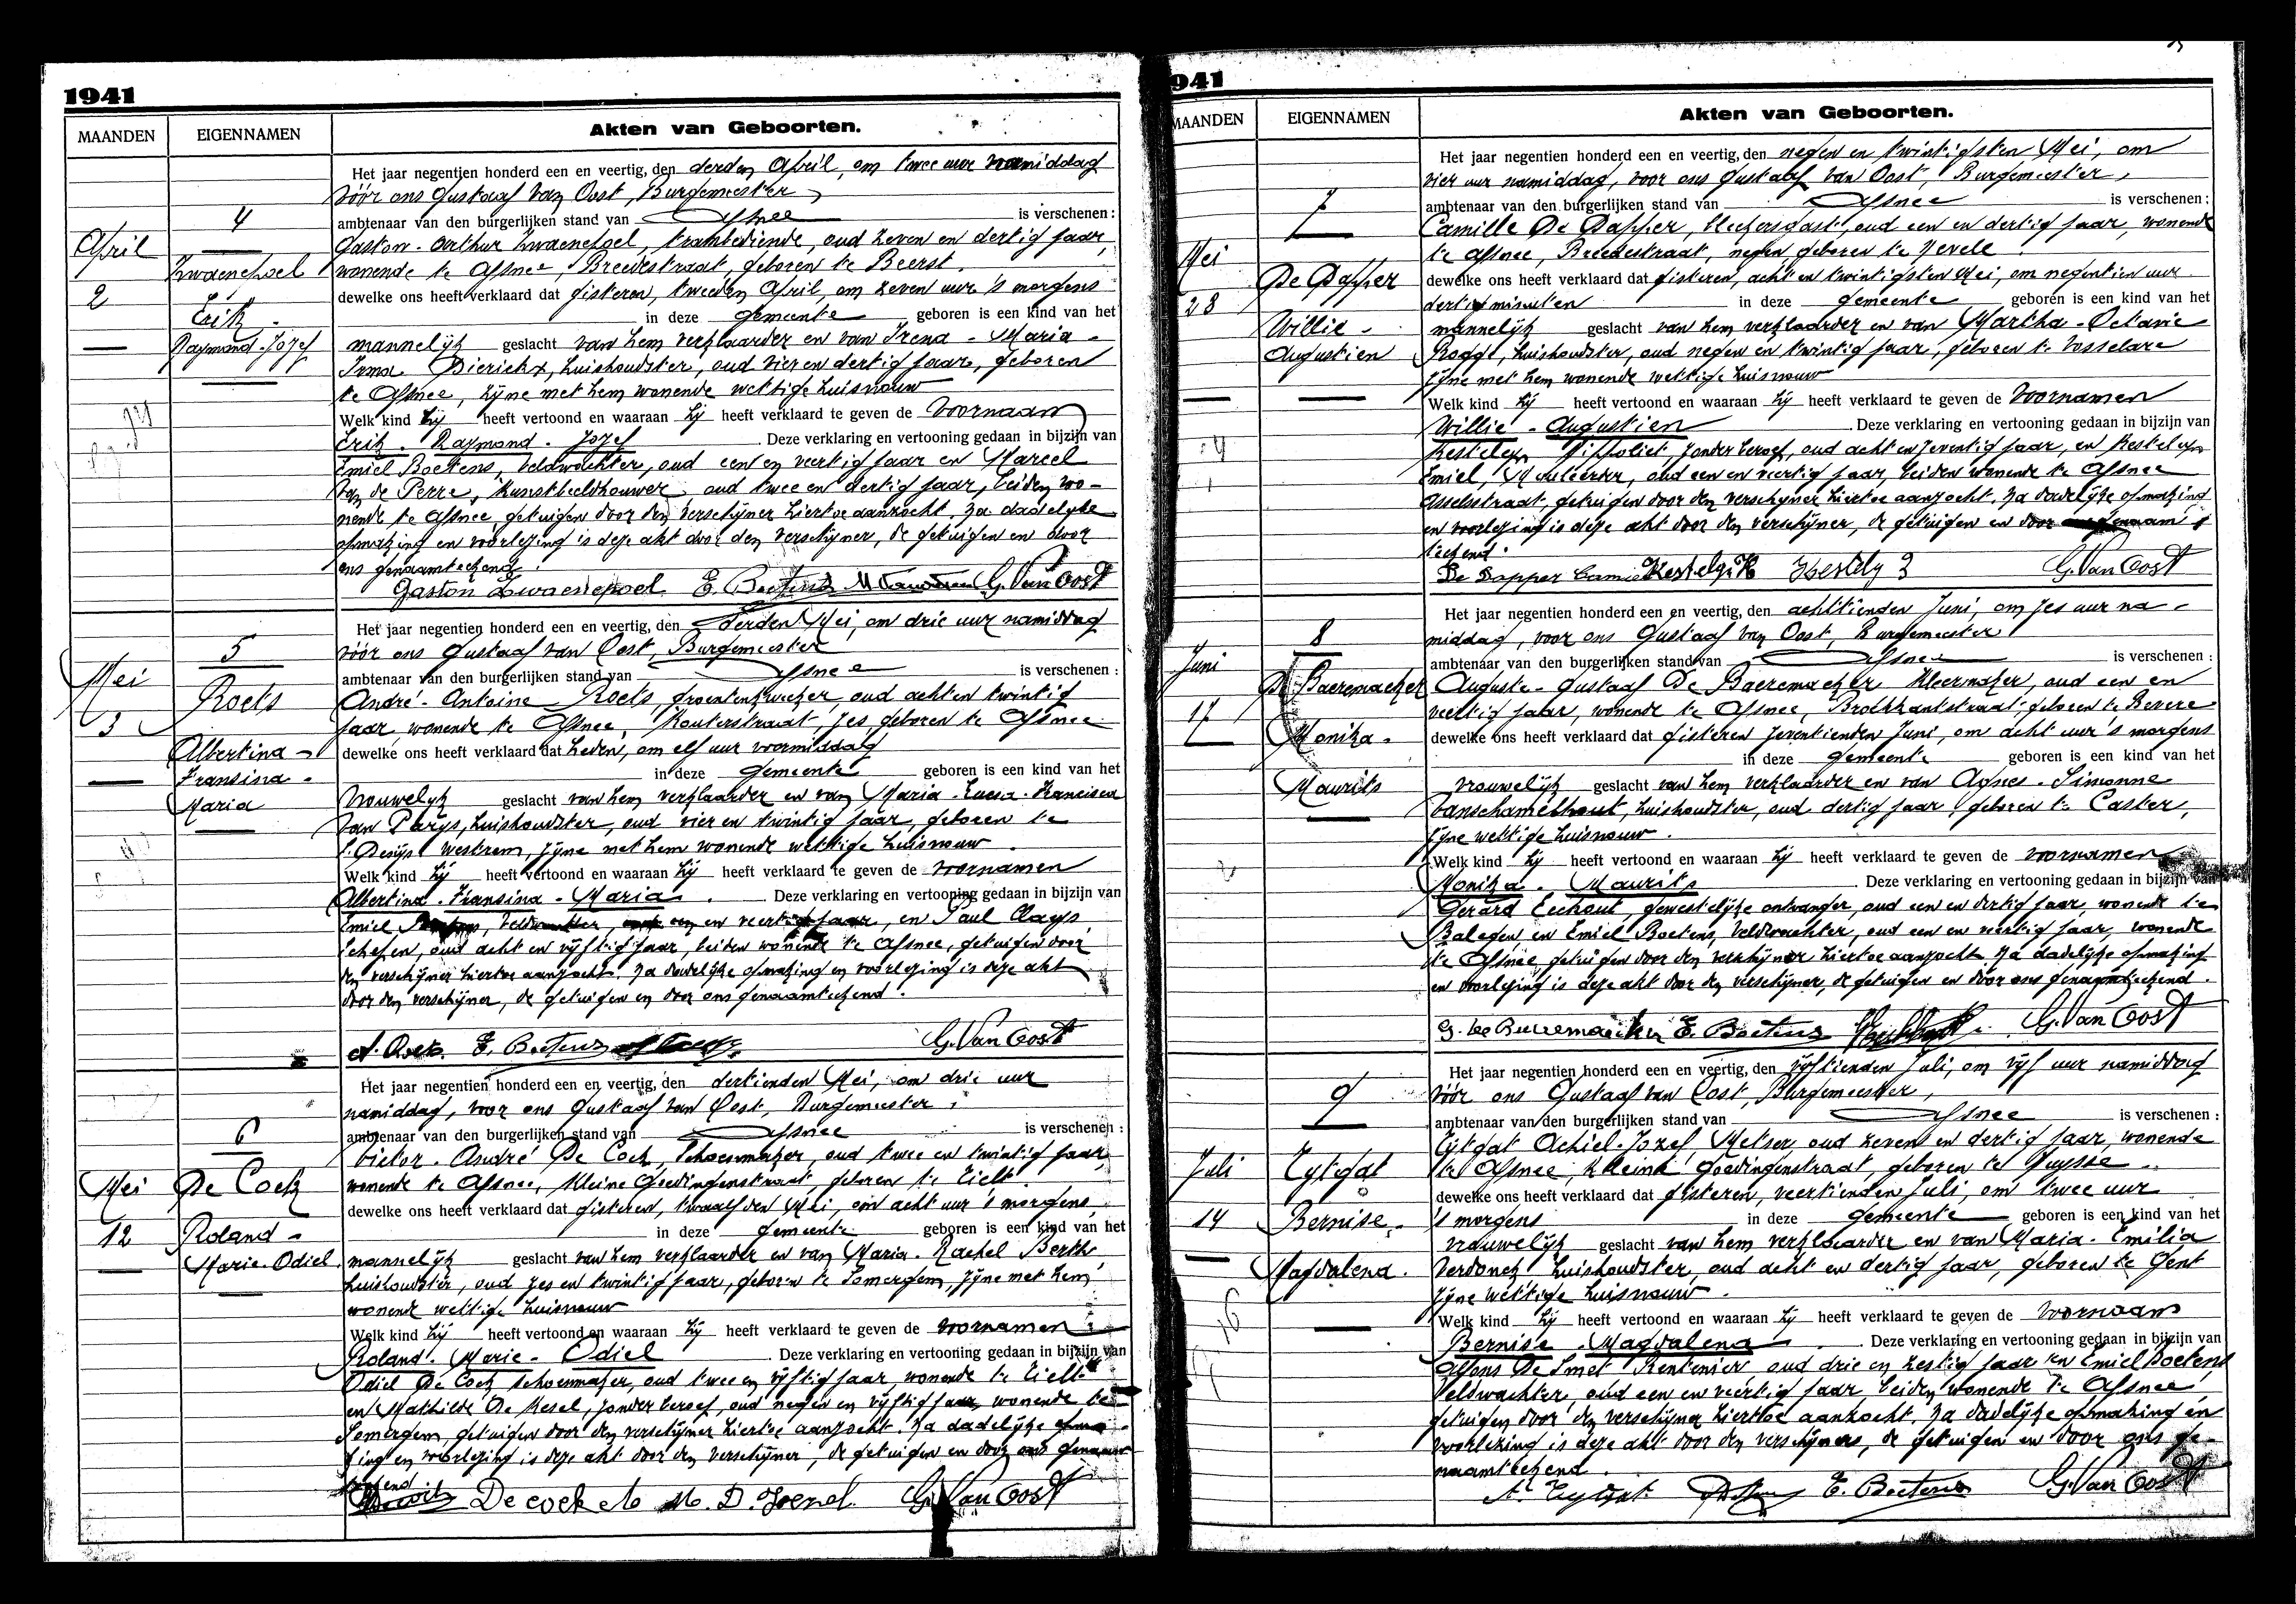 1941
MAANDEN
EIGENNAMEN
Akten van Geboorten.
4
April
Zwaenepoel
2
Erik
Raymond-Jozef
Het jaar negentien honderd een en veertig, den derden April, om twee uur namiddag
vóór ons Gustaaf Van Oost, Burgemeester,
ambtenaar van den burgerlijken stand van Afsnee is verschenen :
Gaston-Arthur Zwaenepoel, trambediende, oud zeven en dertig jaar,
wonende te Afsnee, Breedestraat, geboren te Beerst.
dewelke ons heeft verklaard dat gisteren, tweeden April, om zeven uur 's morgens
in deze gemeente geboren is een kind van het
mannelijk geslacht van hem verklaarder en van Irena-Maria-
Irma Dierickx, huishoudster, oud vier en dertig jaar, geboren
te Afsnee, zijne met hem wonende wettige huisvrouw
Welk kind hij heeft vertoond en waaraan hij heeft verklaard te geven de voornaam
Erik. Raymond. Jozef. Deze verklaring en vertooning gedaan in bijzijn van
Emiel Boetens, veldwachter, oud een en veertig jaar en Marcel
Van de Perre, kunstbeeldhouwer, oud twee en dertig jaar, beiden wo-
nende te Afsnee, getuigen door den verschijner hiertoe aanzocht. Na dadelijke
opmaking en voorlezing is deze akt door den verschijner, de getuigen en door
ons genaamteekend.
Gaston Zwaenepoel E. Boetens G. Van Oost
5
Mei
Roets
3
Albertina-
Fransina-
Maria
Het jaar negentien honderd een en veertig, den derden Mei, om drie uur namiddag
vóór ons Gustaaf van Oost, Burgemeester
ambtenaar van den burgerlijken stand van Afsnee is verschenen :
André-Antoine Roets, groentenkweeker, oud acht en twintig
jaar, wonende te Afsnee, Kouterstraat, zes, geboren te Afsnee
dewelke ons heeft verklaard dat heden, om elf uur voormiddag
in deze gemeente geboren is een kind van het
vrouwelijk geslacht van hem verklaarder en van Maria-Lucia-Francisca
Van Parys, huishoudster, oud vier en twintig jaar, geboren te
St Denijs Westrem, zijne met hem wonende wettige huisvrouw
Welk kind hij heeft vertoond en waaraan hij heeft verklaard te geven de voornamen
Albertina-Fransina-Maria. Deze verklaring en vertooning gedaan in bijzijn van
Emiel Boetens, veldwachter, oud een en veertig jaar, en Paul Clays,
schepen, oud acht en vijftig jaar, beiden wonende te Afsnee, getuigen door
den verschijner hiertoe aanzocht. Na dadelijke opmaking en voorlezing is deze akt
door den verschijner, de getuigen en door ons genaamteekend.
A. Roets E. Boetens G. Van Oost
6
Mei
De Cock
12
Roland-
Marie-Odiel
Het jaar negentien honderd een en veertig, den dertienden Mei, om drie uur
namiddag, voor ons Gustaaf van Oost, Burgemeester,
ambtenaar van den burgerlijken stand van Afsnee is verschenen :
Victor-André De Cock, schoenmaker, oud twee en twintig jaar,
wonende te Afsnee, Kleine Goedingenstraat, geboren te Tielt.
dewelke ons heeft verklaard dat gisteren, twaalfden Mei, om acht uur 's morgens,
in deze gemeente geboren is een kind van het
mannelijk geslacht van hem verklaarder en van Maria-Rachel Berth,
huishoudster, oud zes en twintig jaar, geboren te Somergem, zijne met hem
wonende wettige huisvrouw
Welk kind hij heeft vertoond en waaraan hij heeft verklaard te geven de voornamen
Roland-Marie-Odiel. Deze verklaring en vertooning gedaan in bijzijn van
Odiel De Cock schoenmaker, oud twee en vijftig jaar, wonende te Tielt
en Mathilde De Kesel, zonder beroep, oud negen en vijftig jaar, wonende te
Somergem, getuigen door den verschijner hiertoe aanzocht. Na dadelijke opma-
king en voorlezing is deze akt door den verschijner, de getuigen en door ons genaam-
teekend
De cock G. Van Oost
941
MAANDEN
EIGENNAMEN
Akten van Geboorten.
7
Mei
De Dapper
28
Willie-
Augustien
Het jaar negentien honderd een en veertig, den negen en twintigsten Mei, om
vier uur namiddag, voor ons Gustaaf van Oost, Burgemeester,
ambtenaar van den burgerlijken stand van Afsnee is verschenen :
Camille De Dapper, bleekersgast, oud een en dertig jaar, wonende
te Afsnee, Breedestraat, negen, geboren te Nevele
dewelke ons heeft verklaard dat gisteren, acht en twintigsten Mei, om negentien uur
dertig minuten in deze gemeente geboren is een kind van het
mannelijk geslacht van hem verklaarder en van Martha-Octavie
Rogge, huishoudster, oud negen en twintig jaar, geboren te Vosselare
zijne met hem wonende wettige huisvrouw
Welk kind hij heeft vertoond en waaraan hij heeft verklaard te geven de voornamen
Willie-Augustien. Deze verklaring en vertooning gedaan in bijzijn van
Kestelyn Hippoliet, zonder beroep, oud acht en zeventig jaar, en Kestelyn
Emiel, oud een en veertig jaar, beiden wonende te Afsnee
Asselsstraat, getuigen door den verschijner hiertoe aanzocht. Na dadelijke opmaking
en voorlezing is deze akt door den verschijner, de getuigen en door
teekend.
De Dapper Camiel G. Van Oost
8
Juni
De Baeremaeker
17
Monika-
Maurits
Het jaar negentien honderd een en veertig, den achttienden Juni, om zes uur na-
middag, voor ons Gustaaf van Oost, Burgemeester
ambtenaar van den burgerlijken stand van Afsnee is verschenen :
Auguste-Gustaaf De Baeremaeker Kleermaker, oud een en
veertig jaar, wonende te Afsnee, geboren te Bevere
dewelke ons heeft verklaard dat gisteren zeventienden Juni, om acht uur 's morgens
in deze gemeente geboren is een kind van het
vrouwelijk geslacht van hem verklaarder en van Agnes-Simonne
Vanschamelhout, huishoudster, oud dertig jaar, geboren te Caster,
zijne wettige huisvrouw.
Welk kind hij heeft vertoond en waaraan hij heeft verklaard te geven de voornamen
Monika. Maurits. Deze verklaring en vertooning gedaan in bijzijn van
Gerard Eechout, gewestelijke ontvanger, oud een en dertig jaar, wonende te
Balegem, en Emiel Boetens, veldwachter, oud een en veertig jaar, wonende
te Afsnee, getuigen door den verschijner hiertoe aanzocht. Na dadelijke opmaking
en voorlezing is deze akt door den verschijner, de getuigen en door ons genaamteekend.
E. Boetens G. Van Oost
9
Juli
Tytgat
14
Bernise-
Magdalena.
Het jaar negentien honderd een en veertig, den vijftienden Juli, om vijf uur namiddag
vóór ons Gustaaf van Oost, Burgemeester,
ambtenaar van den burgerlijken stand van Afsnee is verschenen :
Tytgat Achiel-Jozef, Metser, oud zeven en dertig jaar, wonende
te Afsnee, Kleine Goedingenstraat, geboren te Huysse
dewelke ons heeft verklaard dat gisteren, veertienden Juli, om twee uur
's morgens in deze gemeente geboren is een kind van het
vrouwelijk geslacht van hem verklaarder en van Maria-Emilia
Verdonck huishoudster, oud acht en dertig jaar, geboren te Gent
zijne wettige huisvrouw.
Welk kind hij heeft vertoond en waaraan hij heeft verklaard te geven de voornaam
Bernise-Magdalena. Deze verklaring en vertooning gedaan in bijzijn van
Alfons De Smet Rentenier, oud drie en zestig jaar en Emiel Boetens
veldwachter, oud een en veertig jaar, beiden wonende te Afsnee,
getuigen door den verschijner hiertoe aanzocht. Na dadelijke opmaking en
voorlezing is deze akt door den verschijner, de getuigen en door ons ge-
naamteekend.
A. Tytgat E. Boetens G. Van Oost